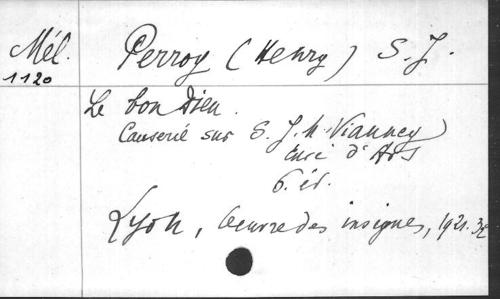 Mél. Perroy (Henry) S. J.
1120
Le bon Dieu.
Causerie sur S. J. M. Vianney
Curé d'Ars
6. éd.
Lyon, Oeuvre des insignes, 1921. 32